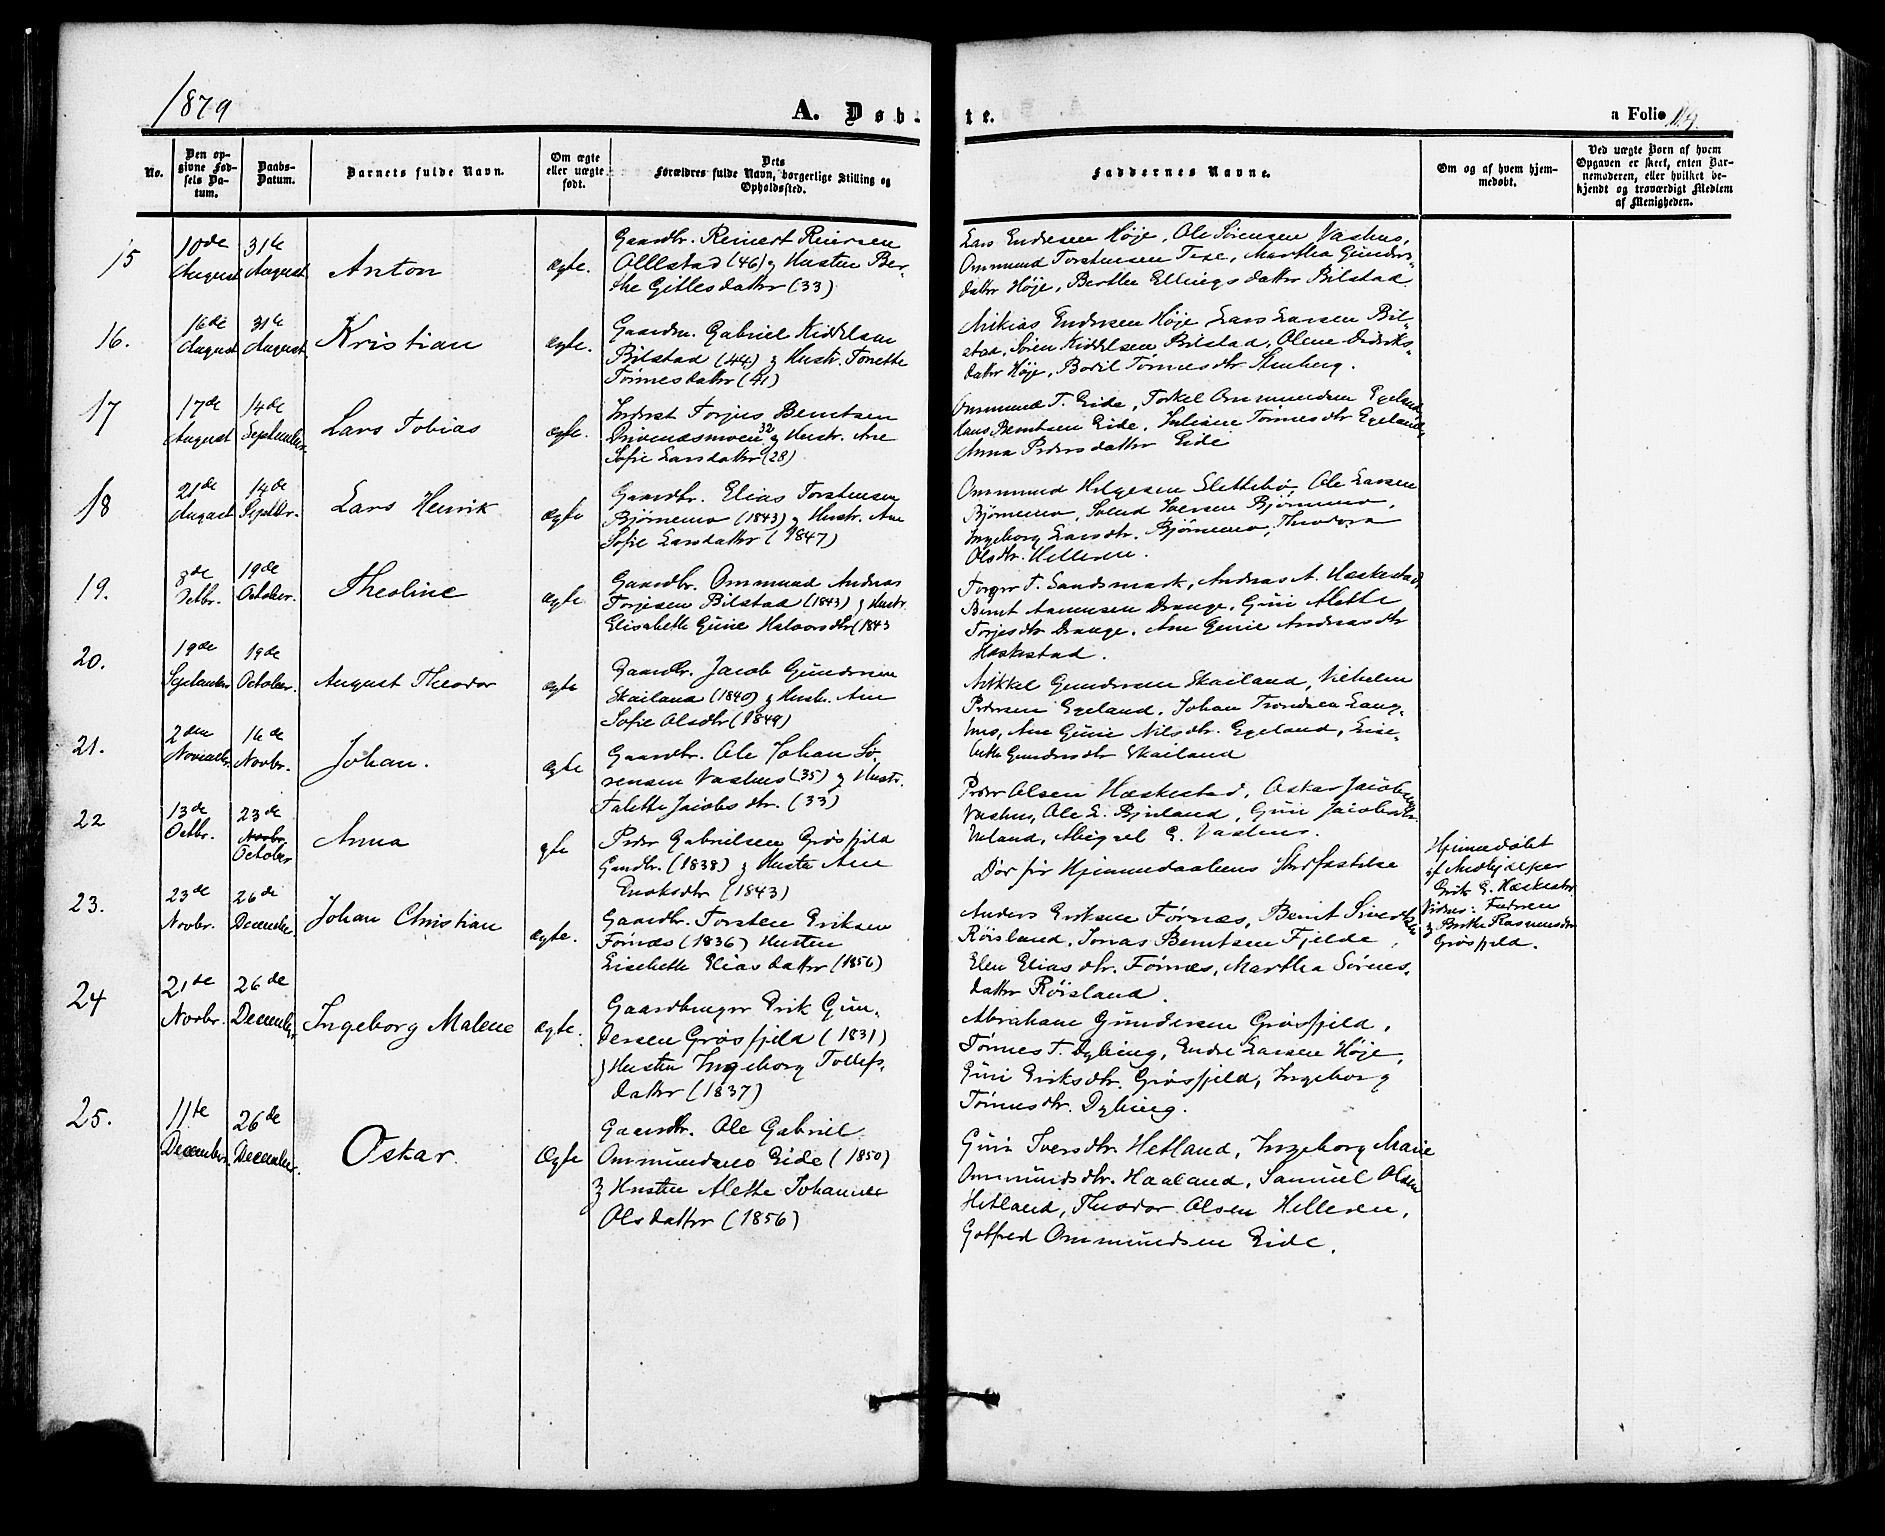 1879
A. Døb-
te.
a Folio 119.
No.
Den op-
givne Fød-
sels Da-
tum.
Daabs-
Datum.
Barnets fulde Navn.
Om ægte
eller uægte
født.
Dets
Forældres fulde Navn, borgerlige Stilling og
Opholdssted.
Faddernes Navne.
Om og af hvem hjem-
medøbt.
Ved uægte Born af hvem
Opgaven er skeet, enten Bar-
nemoderen, eller hvilket be-
kjendt og troværdigt Medlem
af Menigheden.
15
10de
August
31te
August
Anton
ægte.
Gaardbr. Reinert Reiersen
Ollestad (46) & Hustru Ber-
the Gitlesdatter (33)
Lars Endresen Høje, Ole Sørensen Vashus,
Ommund Torstensen Texe, Martha Gunders-
datter Høje, Berthe Ellingsdatter Bilstad
16.
16de
August
31te
August
Kristian
ægte.
Gaardm. Gabriel Kiddelsen
Bilstad (44) & Hustr. Tonette
Tønnesdatter (41)
Mikias Endresen Høje, Lars Larsen Bil-
stad, Sören Kiddelsen Bilstad, Olene Dideriks-
datter Høje, Bodil Tønnesdtr Stenberg.
17
17de
August
14de
September
Lars Tobias
ægte.
Inderst Torjus Berntsen
Drivenæsmoen 32 & Hustr. Ane
Sofie Larsdatter (28)
Ommund T. Eide, Torkel Ommundsen Egeland,
Hans Berntsen Eide, Juliane Tønnesdtr Egeland,
Anna Pedersdatter Eide
18
21de
August
14de
Septbr.
Lars Henrik
ægte
Gaardbr. Elias Torstensen
Bjørnemo (1843) & Hustr. Ane
Sofie Larsdatter (1847)
Ommund Helgesen Slettebø, Ole Larsen
Bjørnemo, Svend Iversen Bjørnemo,
Ingeborg Larsdtr. Bjørnemo, Theodora
Olsdtr. Helleren.
19.
8de
Octbr.
19de
October.
Theoline
ægte
Gaardbr. Ommund Andreas
Torjesen Bilstad (1843) & Hustr.
Elisabeth Gurie Halvorsdtr (1843
Torger T. Sandsmark, Andreas A. Hæskestad,
Bernt Aanensen Drange, Guri Alette
Torjesdtr Drange, Ane Gurie Andreasdtr
Hæskestad.
20.
19de
September
19de
October.
August Theodor
ægte
Gaardbr. Jacob Gundersen
Skailand (1840) & Hustr. Ane
Sofie Olsdtr (1849)
Mikkel Gundersen Skailand, Vilhelm
Pedersen Egeland, Johan Trondsen Lang-
mo, Ane Gurie Nilsdtr. Egeland, Lise-
beth Gundersdtr Skailand
21.
2den
Novembr.
16de
Novbr.
Johan.
ægte
Gaardbr. Ole Johan Sø-
rensen Vashus (35) & Hustr.
Talette Jacobsdtr. (33)
Peder Olsen Hæskestad, Oskar Jacobsen
Vashus, Ole E. Birkeland, Guri Jacobsdtr.
Ueland, Abigael E. Vashus.
22
13de
Octbr.
23de
Novbr.
October
Anna
gte
Peder Gabrielsen Grøsfjeld
Gaardbr. (1838) & Hustr. Ane
Enoksdtr (1843)
Dør før Hjemmedaabens Stadfæstelse
Hjemmedøbt
af Medhjælper
Erik G. Hæskestad
Vidner: Faderen
& Berthe Rasmusdtr
Grøsfjeld.
23.
23de
Novbr.
26de
December
Johan Christian
ægte.
Gaardbr. Torsten Eriksen
Førnæs (1836) Hustru
Lisebeth Eliasdatter (1856)
Anders Eriksen Førnæs, Bernt Sivertsen
Røisland, Jonas Berntsen Fjelde,
Elen Eliasdtr. Førnæs, Martha Sørens-
datter Røisland.
24
21de
Novbr.
26de
December
Ingeborg Malene
ægte.
Gaardbruger Erik Gun-
dersen Grøsfjeld (1831)
& Hustru Ingeborg Tollefs-
datter (1837)
Abraham Gundersen Grøsfjeld,
Tønnes T. Dybing, Endre Larsen Høje,
Guri Eriksdtr. Grøsfjeld, Ingeborg
Tønnesdtr. Dybing.
25.
11te
December.
26de
December.
Oskar.
Ægte
Gaardbr. Ole Gabriel
Ommundsen Eide (1850)
& Hustru Alette Johanne
Olsdatter (1856)
Guri Iversdtr Hetland, Ingeborg Marie
Ommundsdtr. Haaland, Samuel Olsen
Hetland, Theodor Olsen Helleren,
Gotfred Ommundsen Eide.